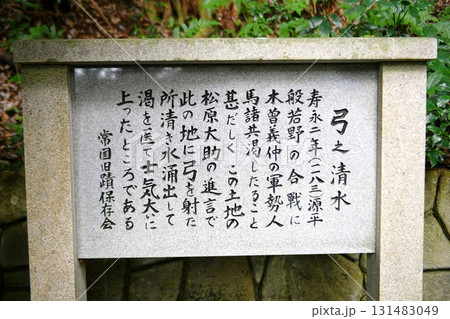 弓之清水
寿永二年(一一八三)源平
般若野の合戦に
木曽義仲の軍勢人
馬諸共渇したること
甚だしくこの土地の
松原大助の進言で
此の地に弓を射た
所清き水涌出して
渇を医て士気大に
上ったところである
常国旧蹟保存会
131483049